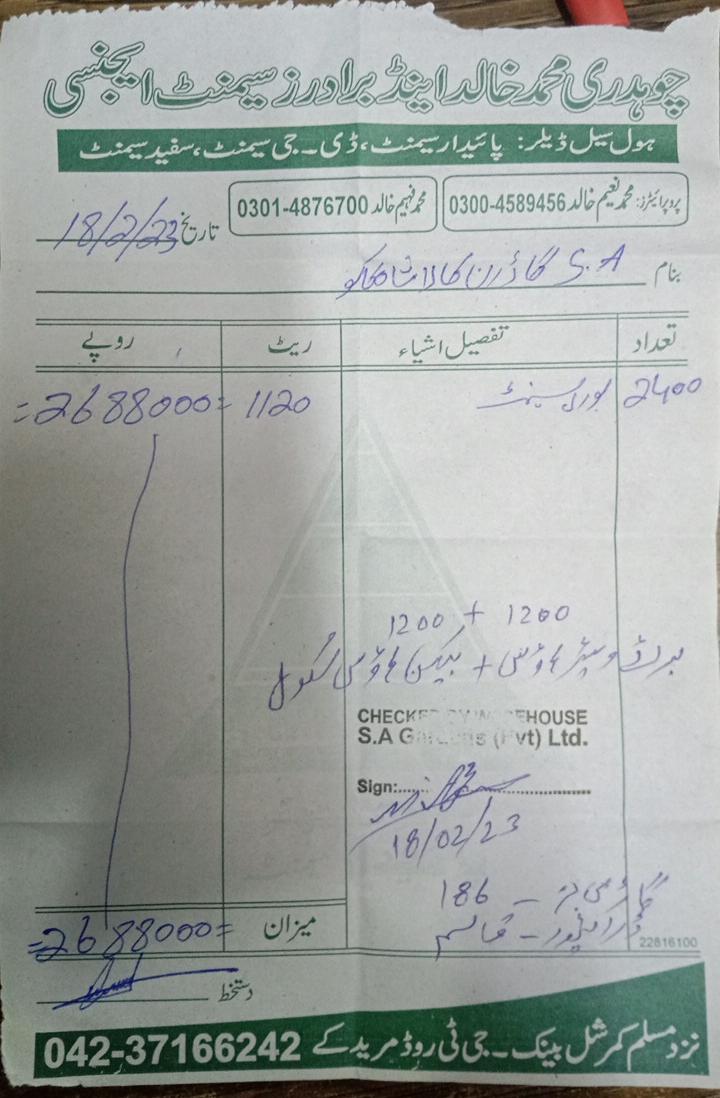 چوہدری محمد خالد اینڈ برادرز سیمنٹ ایجنسی
ہول سیل ڈیلر: پائیدار سیمنٹ، ڈی۔جی سیمنٹ، سفید سیمنٹ
پروپرائیٹرز: محمد نعیم خالد 0300-4589456 محمد فہیم خالد 0301-4876700
تاریخ 18/2/23
بنام S.A گارڈن
تعداد تفصیل اشیاء ریٹ روپے
2400 بوری سیمنٹ 1120 =2688000=
1200 + 1200
براڈ وے ہاؤس + بیکن ہاؤس سکول
CHECKED BY WAREHOUSE
S.A Gardens (Pvt) Ltd.
Sign:
18/02/23
گاڑی نمبر - 186
ڈرائیور - قاسم
22816100
میزان =2688000=
دستخط
نزد مسلم کمرشل بینک۔ جی ٹی روڈ مریدکے 042-37166242